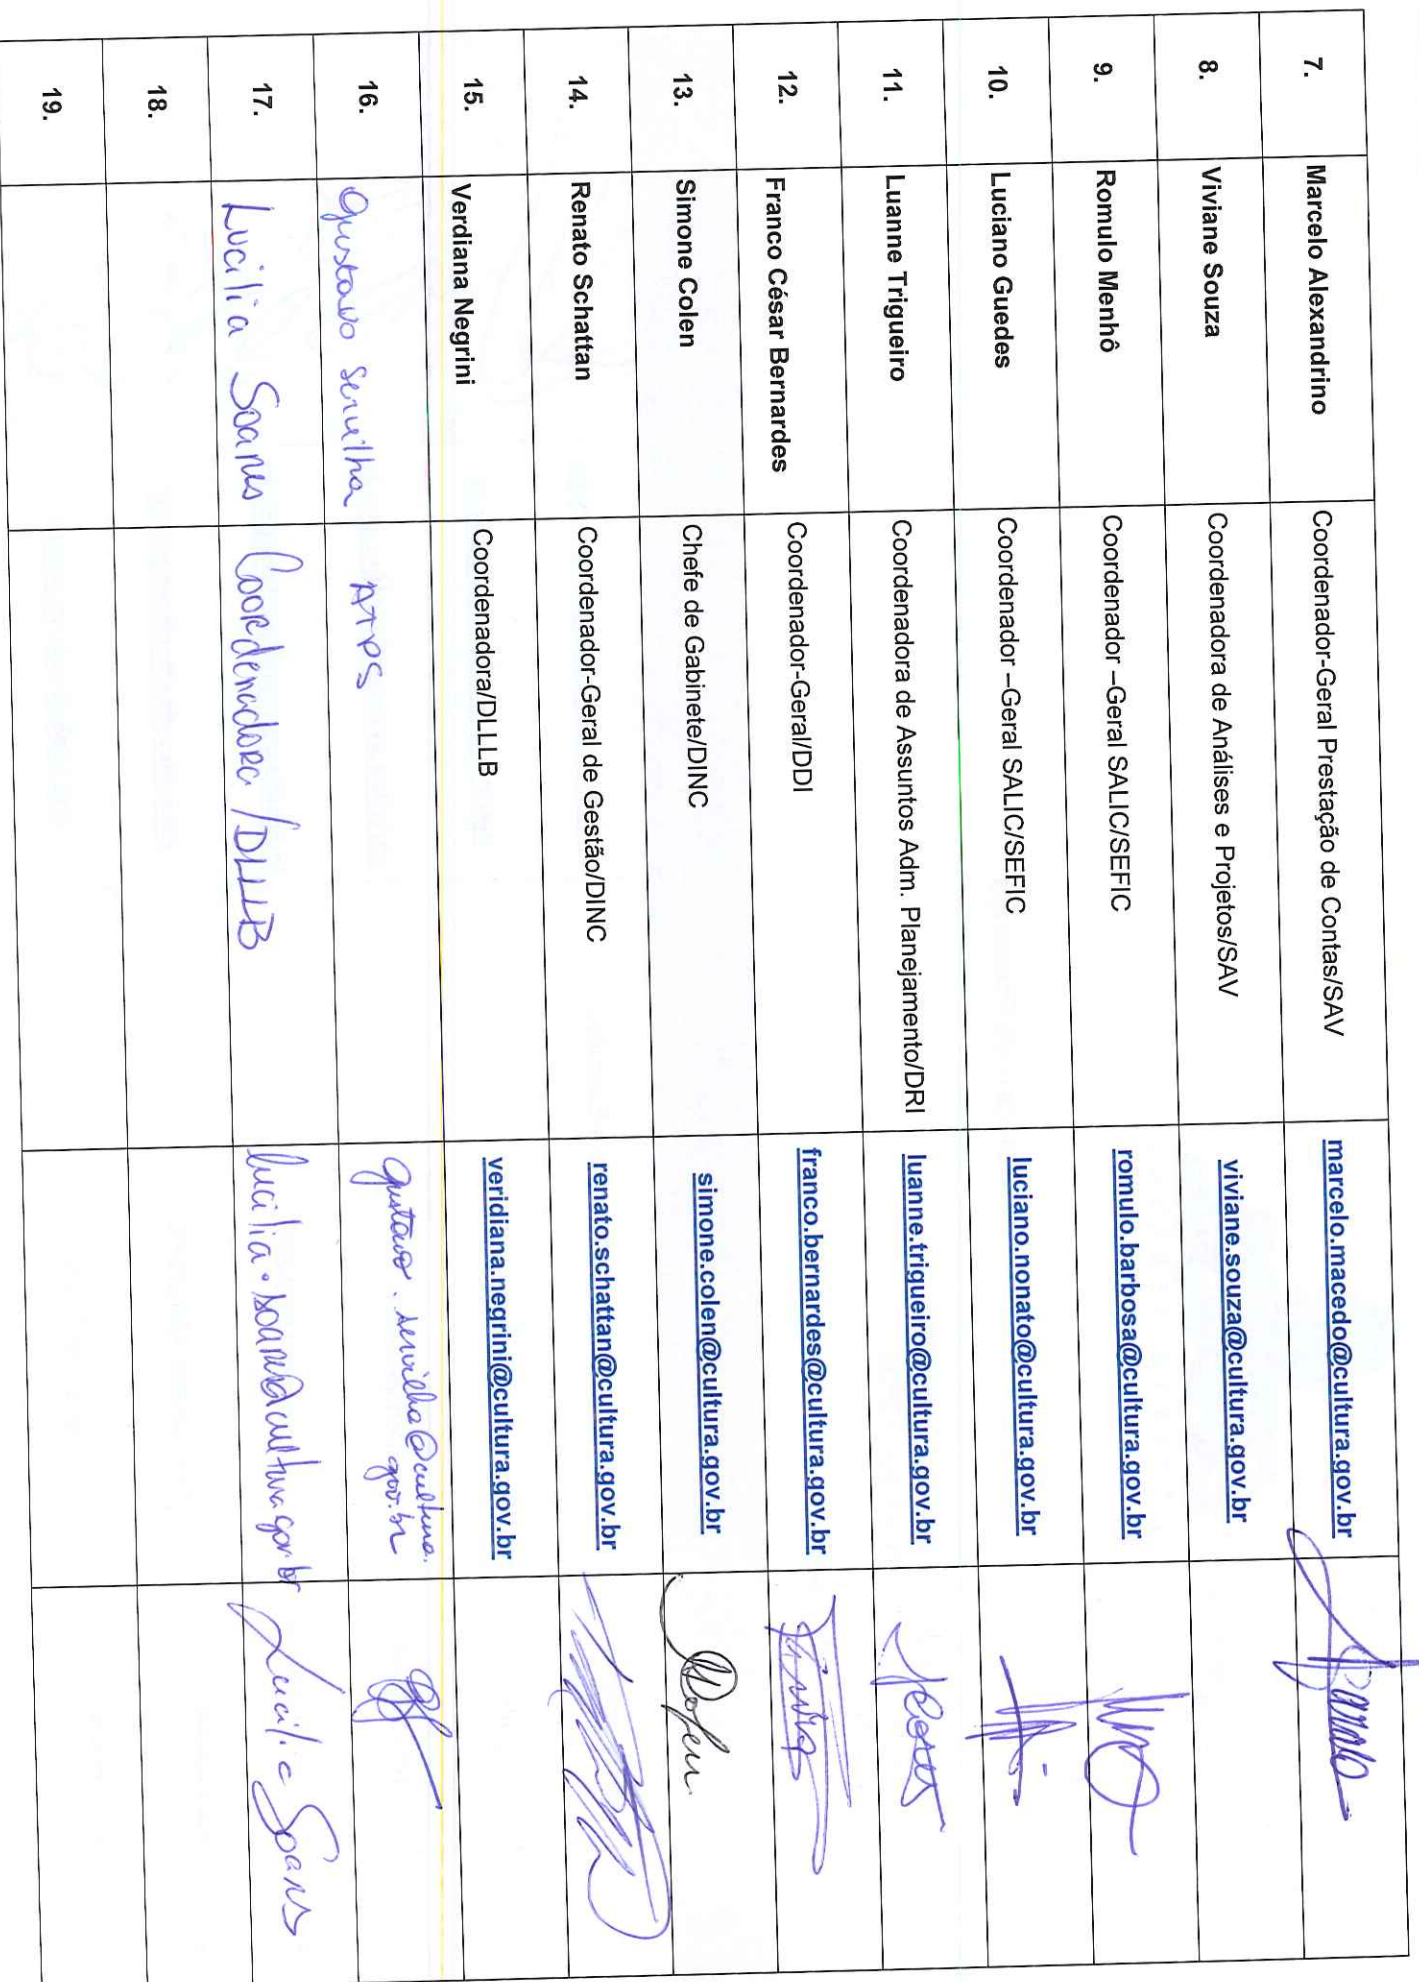 7. Marcelo Alexandrino Coordenador-Geral Prestação de Contas/SAV marcelo.macedo@cultura.gov.br
8. Viviane Souza Coordenadora de Análises e Projetos/SAV viviane.souza@cultura.gov.br
9. Romulo Menhô Coordenador –Geral SALIC/SEFIC romulo.barbosa@cultura.gov.br
10. Luciano Guedes Coordenador –Geral SALIC/SEFIC luciano.nonato@cultura.gov.br
11. Luanne Trigueiro Coordenadora de Assuntos Adm. Planejamento/DRI luanne.trigueiro@cultura.gov.br
12. Franco César Bernardes Coordenador-Geral/DDI franco.bernardes@cultura.gov.br
13. Simone Colen Chefe de Gabinete/DINC simone.colen@cultura.gov.br
14. Renato Schattan Coordenador-Geral de Gestão/DINC renato.schattan@cultura.gov.br
15. Verdiana Negrini Coordenadora/DLLLB veridiana.negrini@cultura.gov.br
16. Gustavo Servilha ATPS gustavo.servilha@cultura.
gov.br
17. Lucilia Soares Coordenadora/DLLLB lucilia.soares@cultura.gov.br Lucilia Soares
18.
19.